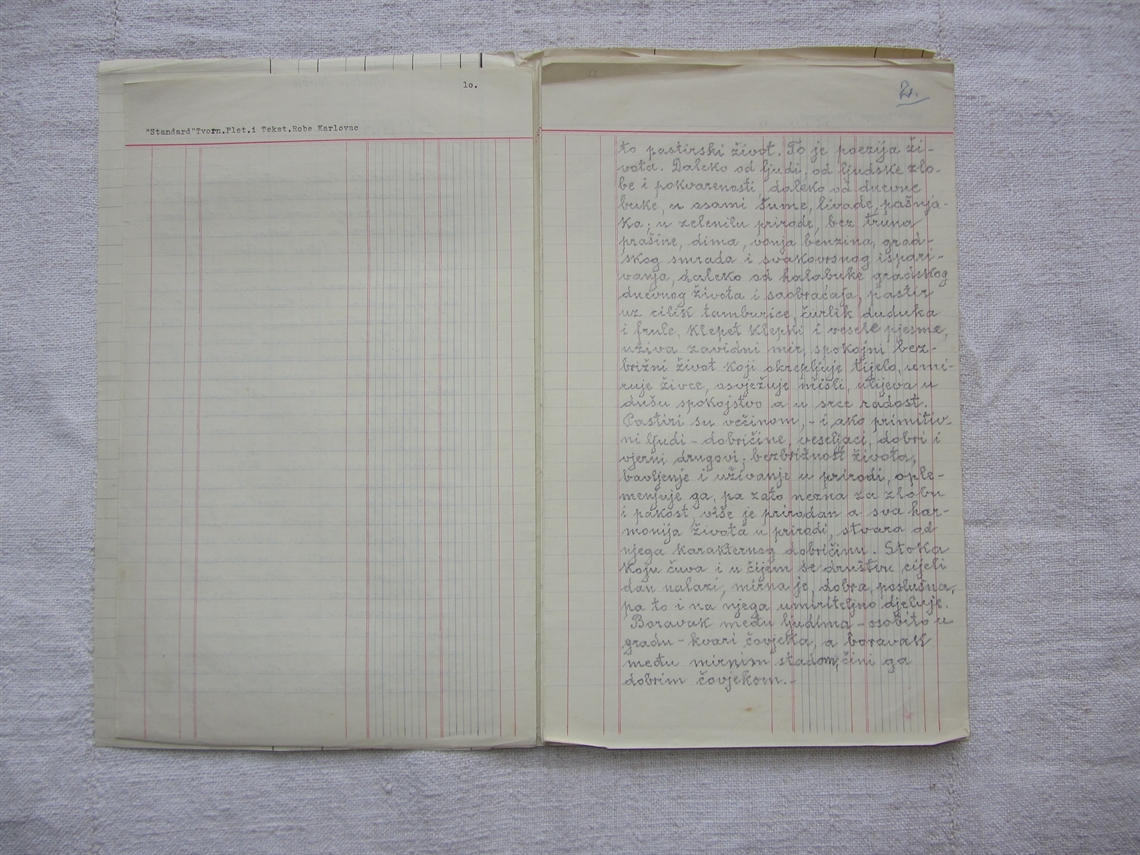 lo.
"Standard"Tvorn.Plet.i Tekst.Robe Karlovac
2.
to pastirski život. To je poezija ži-
vota. Daleko od ljudi, od ljudske zlo-
be i pokvarenosti, daleko od dnevne
buke, u osami šume, livade, pašnja-
ka; u zelenilu prirode, bez truna
prašine, dima, vonja benzina, grad-
skog smrada i svakovrsnog ispari-
vanja, daleko od halabuke gradskog
dnevnog života i saobraćaja, pastir
uz cilik tamburice, ćurlik duduka
i frule, klepet klepki i vesele pjesme,
uživa zavidni mir, spokojni bez-
brižni život koji okrepljuje tijelo, umi-
ruje živce, osvježuje misli, ulijeva u
dušu spokojstvo a u srce radost.
Pastiri su većinom, - i ako primitiv-
ni ljudi - dobričine, veseljaci, dobri i
vjerni drugovi; bezbrižnost života,
bavljenje i uživanje u prirodi, ople-
menjuje ga, pa zato nezna za zlobu
i pakost, više je prirodan a sva har-
monija života u prirodi, stvara od
njega karakternog dobričinu. Stoka
koju čuva i u čijem se društvu cijeli
dan nalazi, mirna je, dobra, poslušna,
pa to i na njega umiriteljno djeluje.
Boravak među ljudima - osobito u
gradu - kvari čovjeka, a boravak
među mirnim stadom, čini ga
dobrim čovjekom. -